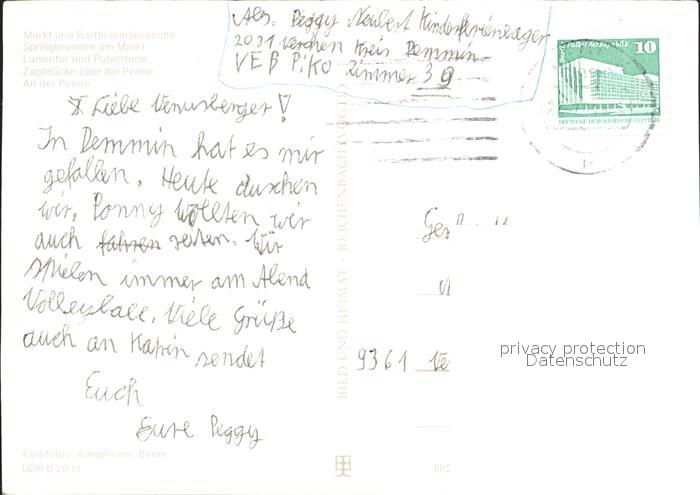 Markt und Bartholomäuskirche
Springbrunnen am Markt
Luisentor und Pulverturm
Zugbrücke über die Peene
An der Peene
Abs. Peggy Neubert Kinderferienlager
2031 Verchen Kreis Demmin
VEB Piko Zimmer 39
Berlin, Palast der Republik 10
DEUTSCHE DEMOKRATISCHE REPUBLIK
Liebe Venusberger!
In Demmin hat es mir
gefallen. Heute duschen
wir. Ponny wollten wir
auch fahren reiten. Wir
spielen immer am Abend
Volleyball. Viele Grüße
auch an Katrin sendet
Euch
Eure Peggy
BILD UND HEIMAT · REICHENBACH
9361 Ve
privacy protection
Datenschutz
Farbfotos: Kamphmann, Berlin
DDR 0,20 M
III/2